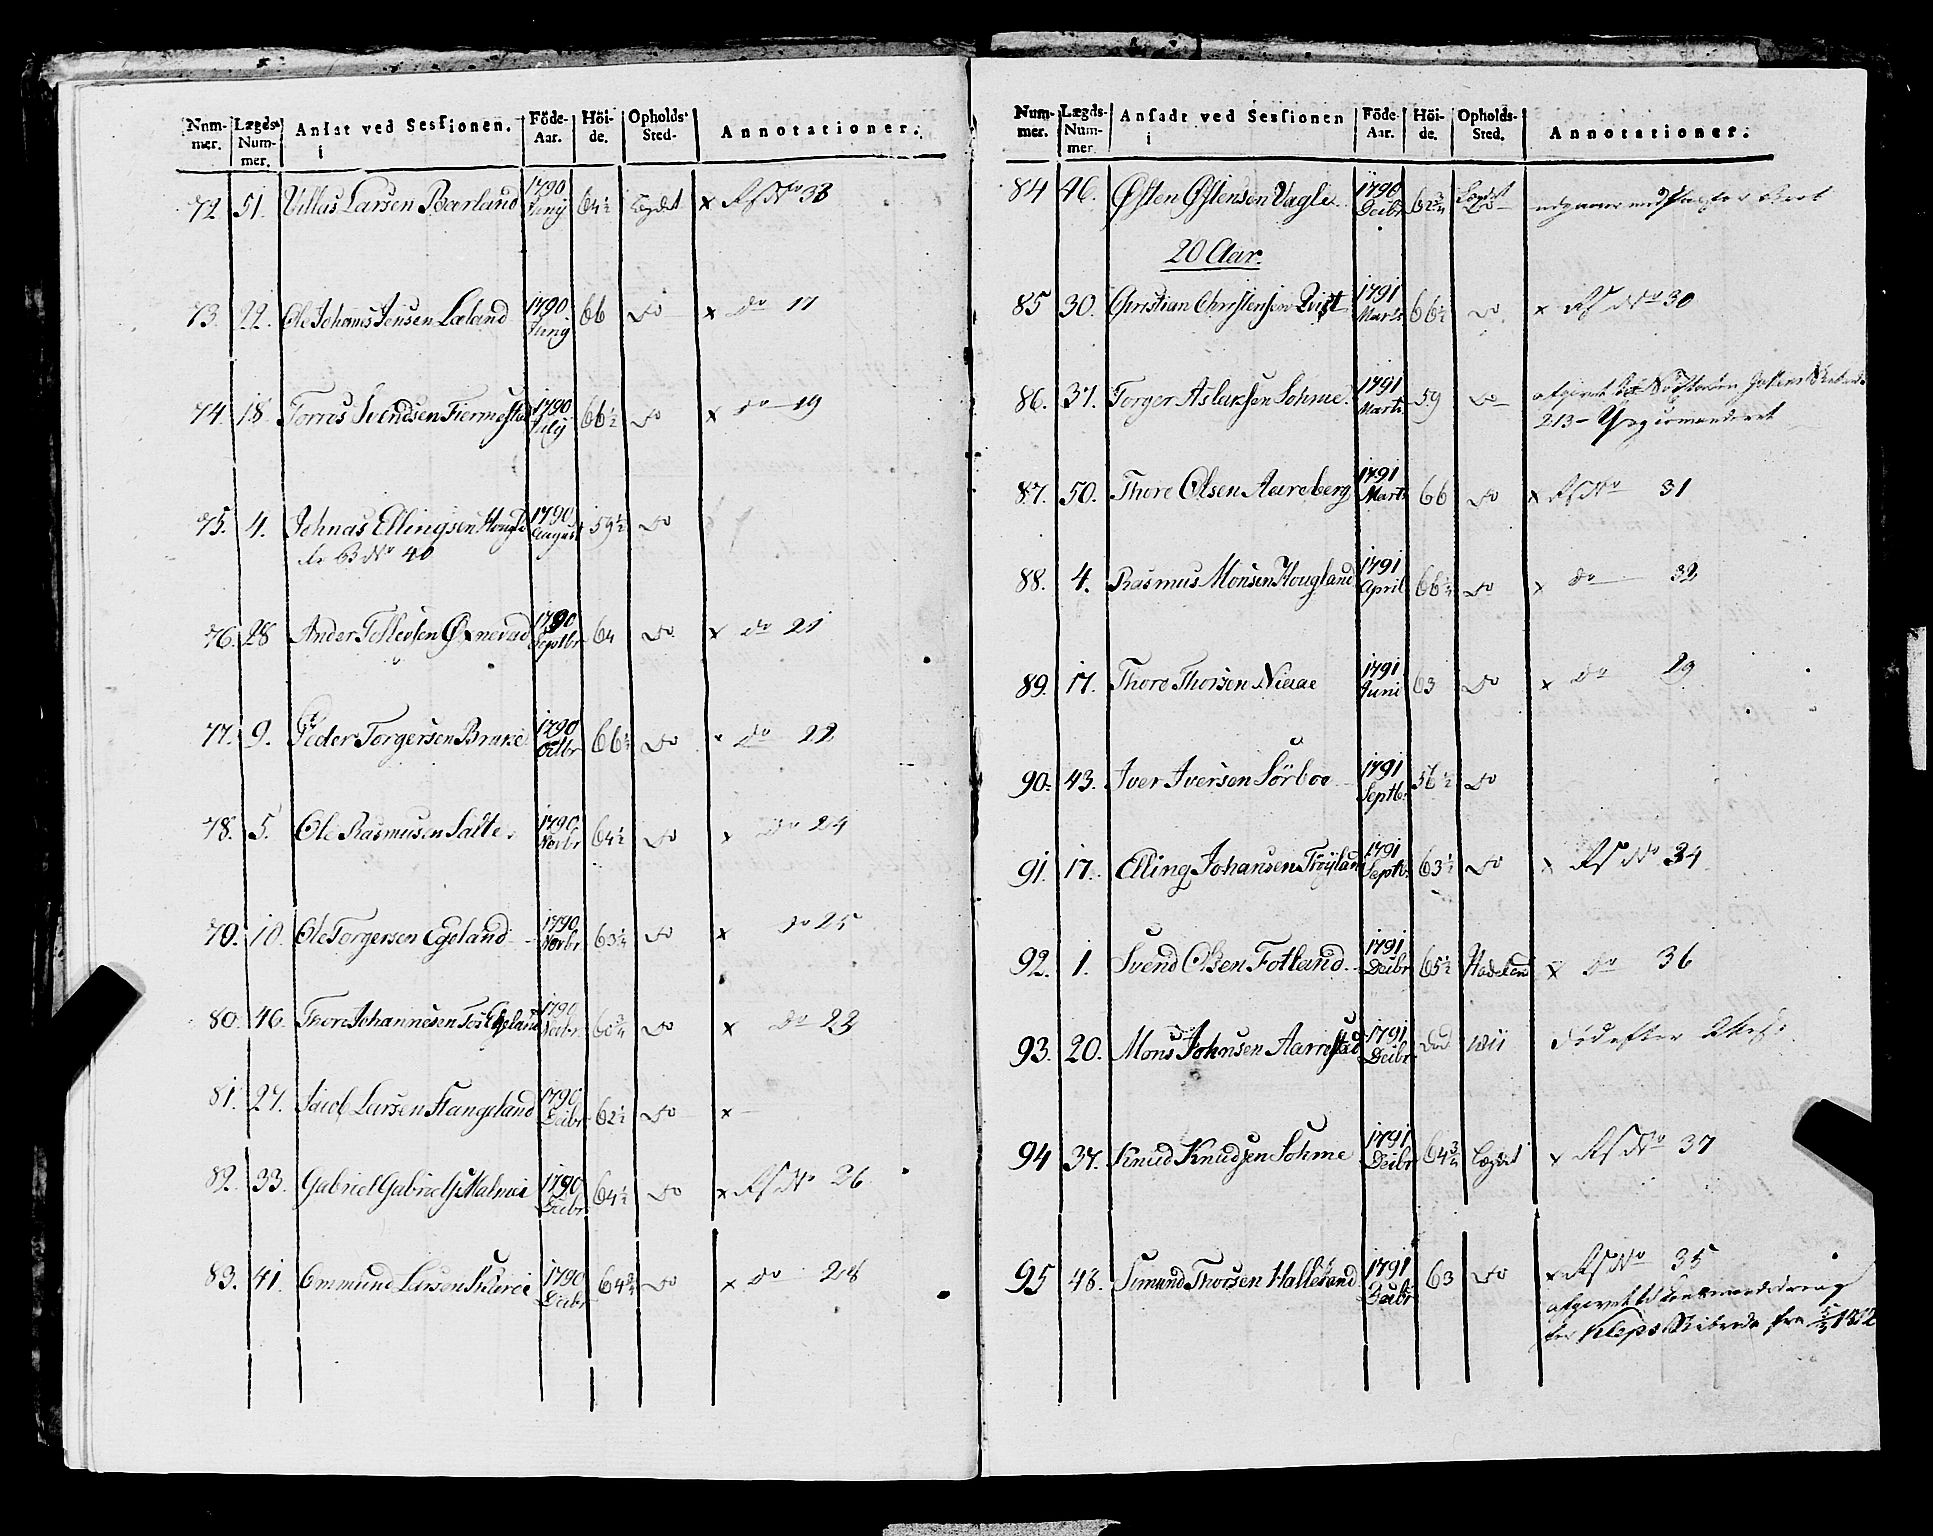 Num- Lægds- Ansat ved Sessionen. Föde- Höi- Opholds- Annotationer.
mer. Num- i Aar. de. Sted.
mer.
72 51. Villas Larsen Bærland 1790 Junÿ 64½ Lægdet x RS No 33
73. 22. Ole Johannes Jensen Læland 1790 Junÿ 66 Do x do 17
74. 18. Torres Svendsen Tiermestad 1790 Julÿ 66½ Do x do 19
75. 4. Johnas Ellingsen Hougl 1790 August 59½ Do
No 40
76. 28 Ander Tollevsen Øxnevad 1790 Septbr 64 Do x do 21
77. 9. Peder Torgersen Brune 1790 Octbr 66½ Do x do 22
78. 5. Ole Rasmusen Salte. 1790 Novbr 64½ Do x do 24
79. 10. Ole Torgersen Egeland 1790 Novbr 63¼ Do x do 25
80. 46. Thore Johannesen 1790 60¾ Do x do 23
81. 27. Larsen Stangeland 1790 Decbr 62½ Do x
82. 33. Gabriel Gabriels. Malmei 1790 Decbr 64½ Do x RS No 26
83. 41. Ommund Larsen Skiæveı 1790 Decbr 64¾ Do x do 28
Num- Lægds- Ansadt ved Sessionen Föde- Höi- Opholds- Annotationer.
mer. Num- i Aar. de. Sted.
mer.
84 46. Østen Østensen Vagle. 1790 Decbr 62¾ Lægdet Do
20 Aar.
85 30. Christian Christensen Qvist 1791 Marts 66½ Do x RS No 30
86. 37. Torger Aslaksen Sohme. 1791 Marts 59 Do afgivet
213
87. 50. Thore Olsen Aareberg 1791 Marts 66 Do x RS No 31
88. 4. Rasmus Monsen Hougland 1791 April 66½ Do x do 32
89. 17. Thore Thorsen Niaae 1791 Juni 63 Do x do 29
90. 43. Iver Iversen Sörboe 1791 Septbr 56½ Do
91. 17. Elling Johansen Tröÿland 1791 Septbr 63½ Do x RS No 34
92. 1. Svend Olsen Fotland. 1791 Decbr 65½ Hadeland x do 36
93. 20. Mons Johnsen Aarrestad 1791 Decbr Död 1811 död efter
94 37. Knud Knudsen Sohme 1791 Decbr 64¾ Lægdet x RS No 37
95 48. Simund Thorsen Halleland 1791 Decbr 63 Do x RS No 35
afgivet til
for Kleps Skibrede fra 1812